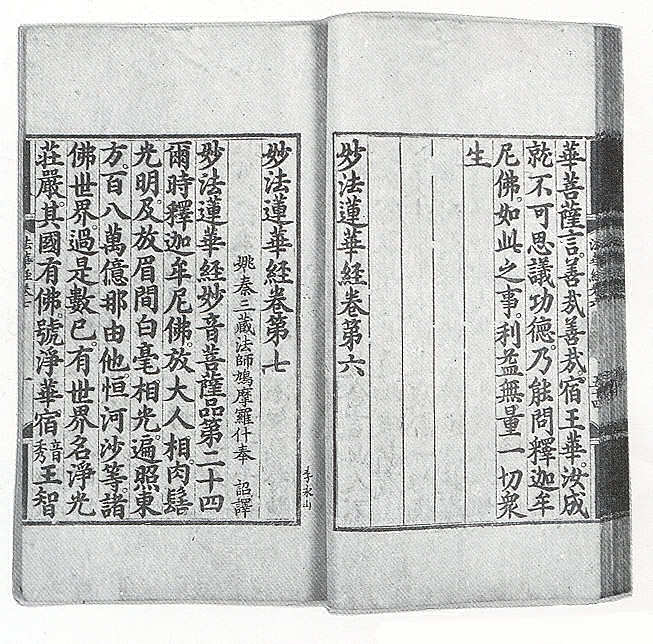 華菩薩言。善哉善哉。宿王華。汝成
就不可思議功德。乃能問釋迦牟
尼佛。如此之事。利益無量一切衆
生
妙法蓮華經卷第六
李永山
妙法蓮華經卷第七
姚秦三藏法師鳩摩羅什奉 詔譯
妙法蓮華經妙音菩薩品第二十四
爾時釋迦牟尼佛。放大人相。肉髻
光明。及放眉間白毫相光。遍照東
方。百八萬億那由他恒河沙等諸
佛世界。過是數已。有世界名淨光
莊嚴。其國有佛。號淨華宿王智
音
秀